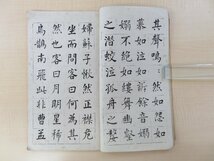 其聲嗚嗚然如怨如
慕如泣如訴餘音嫋
嫋不絕如縷舞幽壑
之潛蛟泣孤舟之嫠
婦蘇子愀然正襟危
坐而問客曰何為其
然也客曰月明星稀
烏鵲南飛此非曹孟